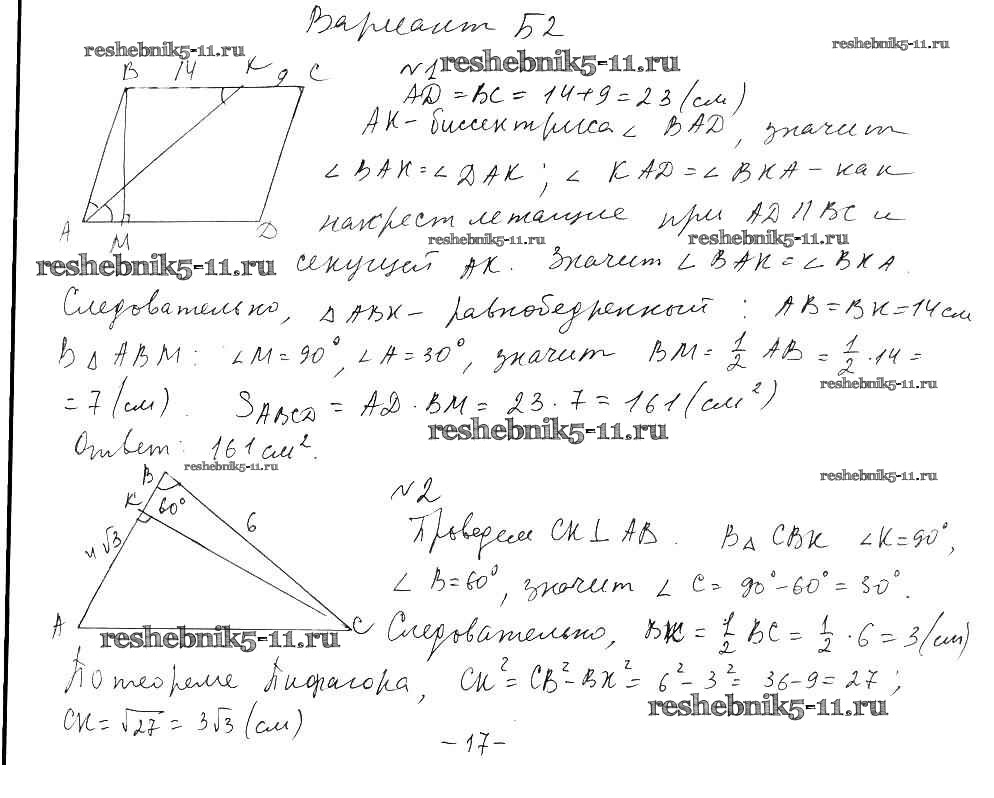 Вариант Б2
reshebnik5-11.ru
reshebnik5-11.ru
B 14 K 9 C
A M D
№1 reshebnik5-11.ru
AD = BC = 14+9 = 23 (см)
AK - биссектриса ∠ BAD, значит
∠ BAK = ∠ DAK; ∠ KAD = ∠ BKA - как
накрест лежащие при AD || BC и
reshebnik5-11.ru
reshebnik5-11.ru
reshebnik5-11.ru
секущей AK. Значит ∠ BAK = ∠ BKA.
Следовательно, △ ABK - равнобедренный: AB = BK = 14 см
В △ ABM: ∠M = 90°, ∠A = 30°, значит BM = 1/2 AB = 1/2 · 14 =
reshebnik5-11.ru
= 7 (см). S ABCD = AD · BM = 23 · 7 = 161 (см²)
reshebnik5-11.ru
Ответ: 161 см².
reshebnik5-11.ru
reshebnik5-11.ru
B
K 60°
4√3 6
A C
№2
Проведем CK ⊥ AB. В △ CBK ∠K = 90°,
∠ B = 60°, значит ∠ C = 90° - 60° = 30°.
reshebnik5-11.ru
Следовательно, BK = 1/2 BC = 1/2 · 6 = 3 (см)
По теореме Пифагора, CK² = CB² - BK² = 6² - 3² = 36 - 9 = 27;
reshebnik5-11.ru
CK = √27 = 3√3 (см)
- 17 -